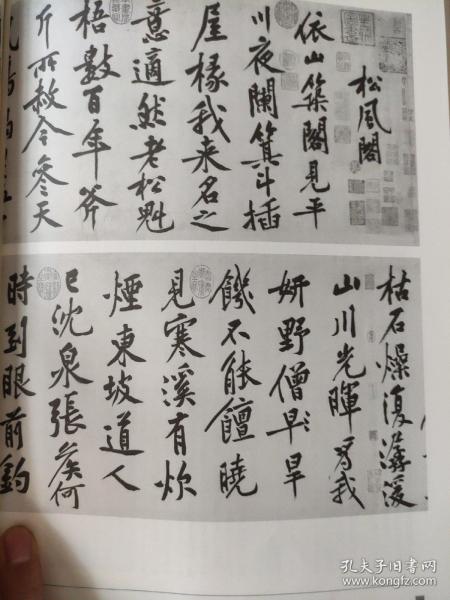 松風閣
依山築閣見平
川夜闌箕斗插
屋椽我来名之
意適然老松魁
梧數百年斧
斤所赦今參天
枯石燥復潺湲
山川光暉為我
妍野僧早旱
饑不能饘曉
見寒溪有炊
煙東坡道人
已沈泉張矦何
時到眼前釣
孔夫子旧书网
www.kongfz.com